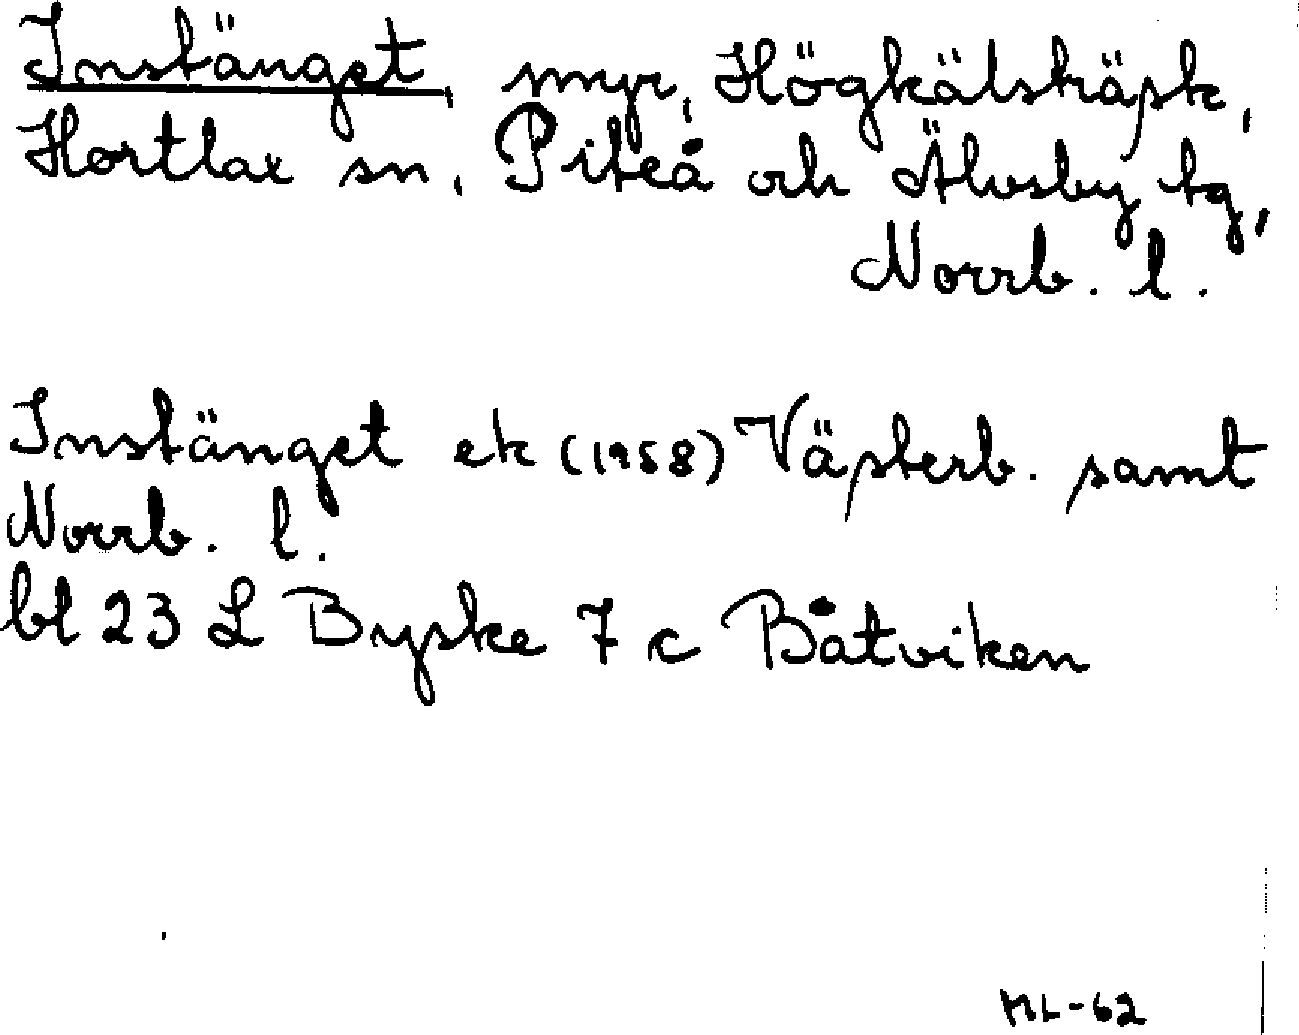 Instänget, myr, Högkälsträsk,
Hortlax sn, Piteå och Älvsby tg,
Norrb. l.
Instänget ek (1958) Västerb. samt
Norrb. l.
bl 23 L Byske 7 c Båtviken
ML-62